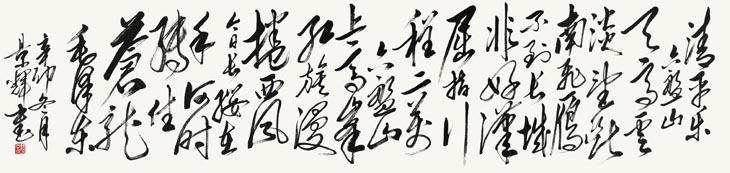 清平乐
六盘山
天高云
淡望断
南飞雁
不到长城
非好汉
屈指行
程二万
六盘山
上高峰
红旗漫
捲西风
今日长缨在
手何时
缚住
苍龙
毛泽东
辛卯冬月
景辉书